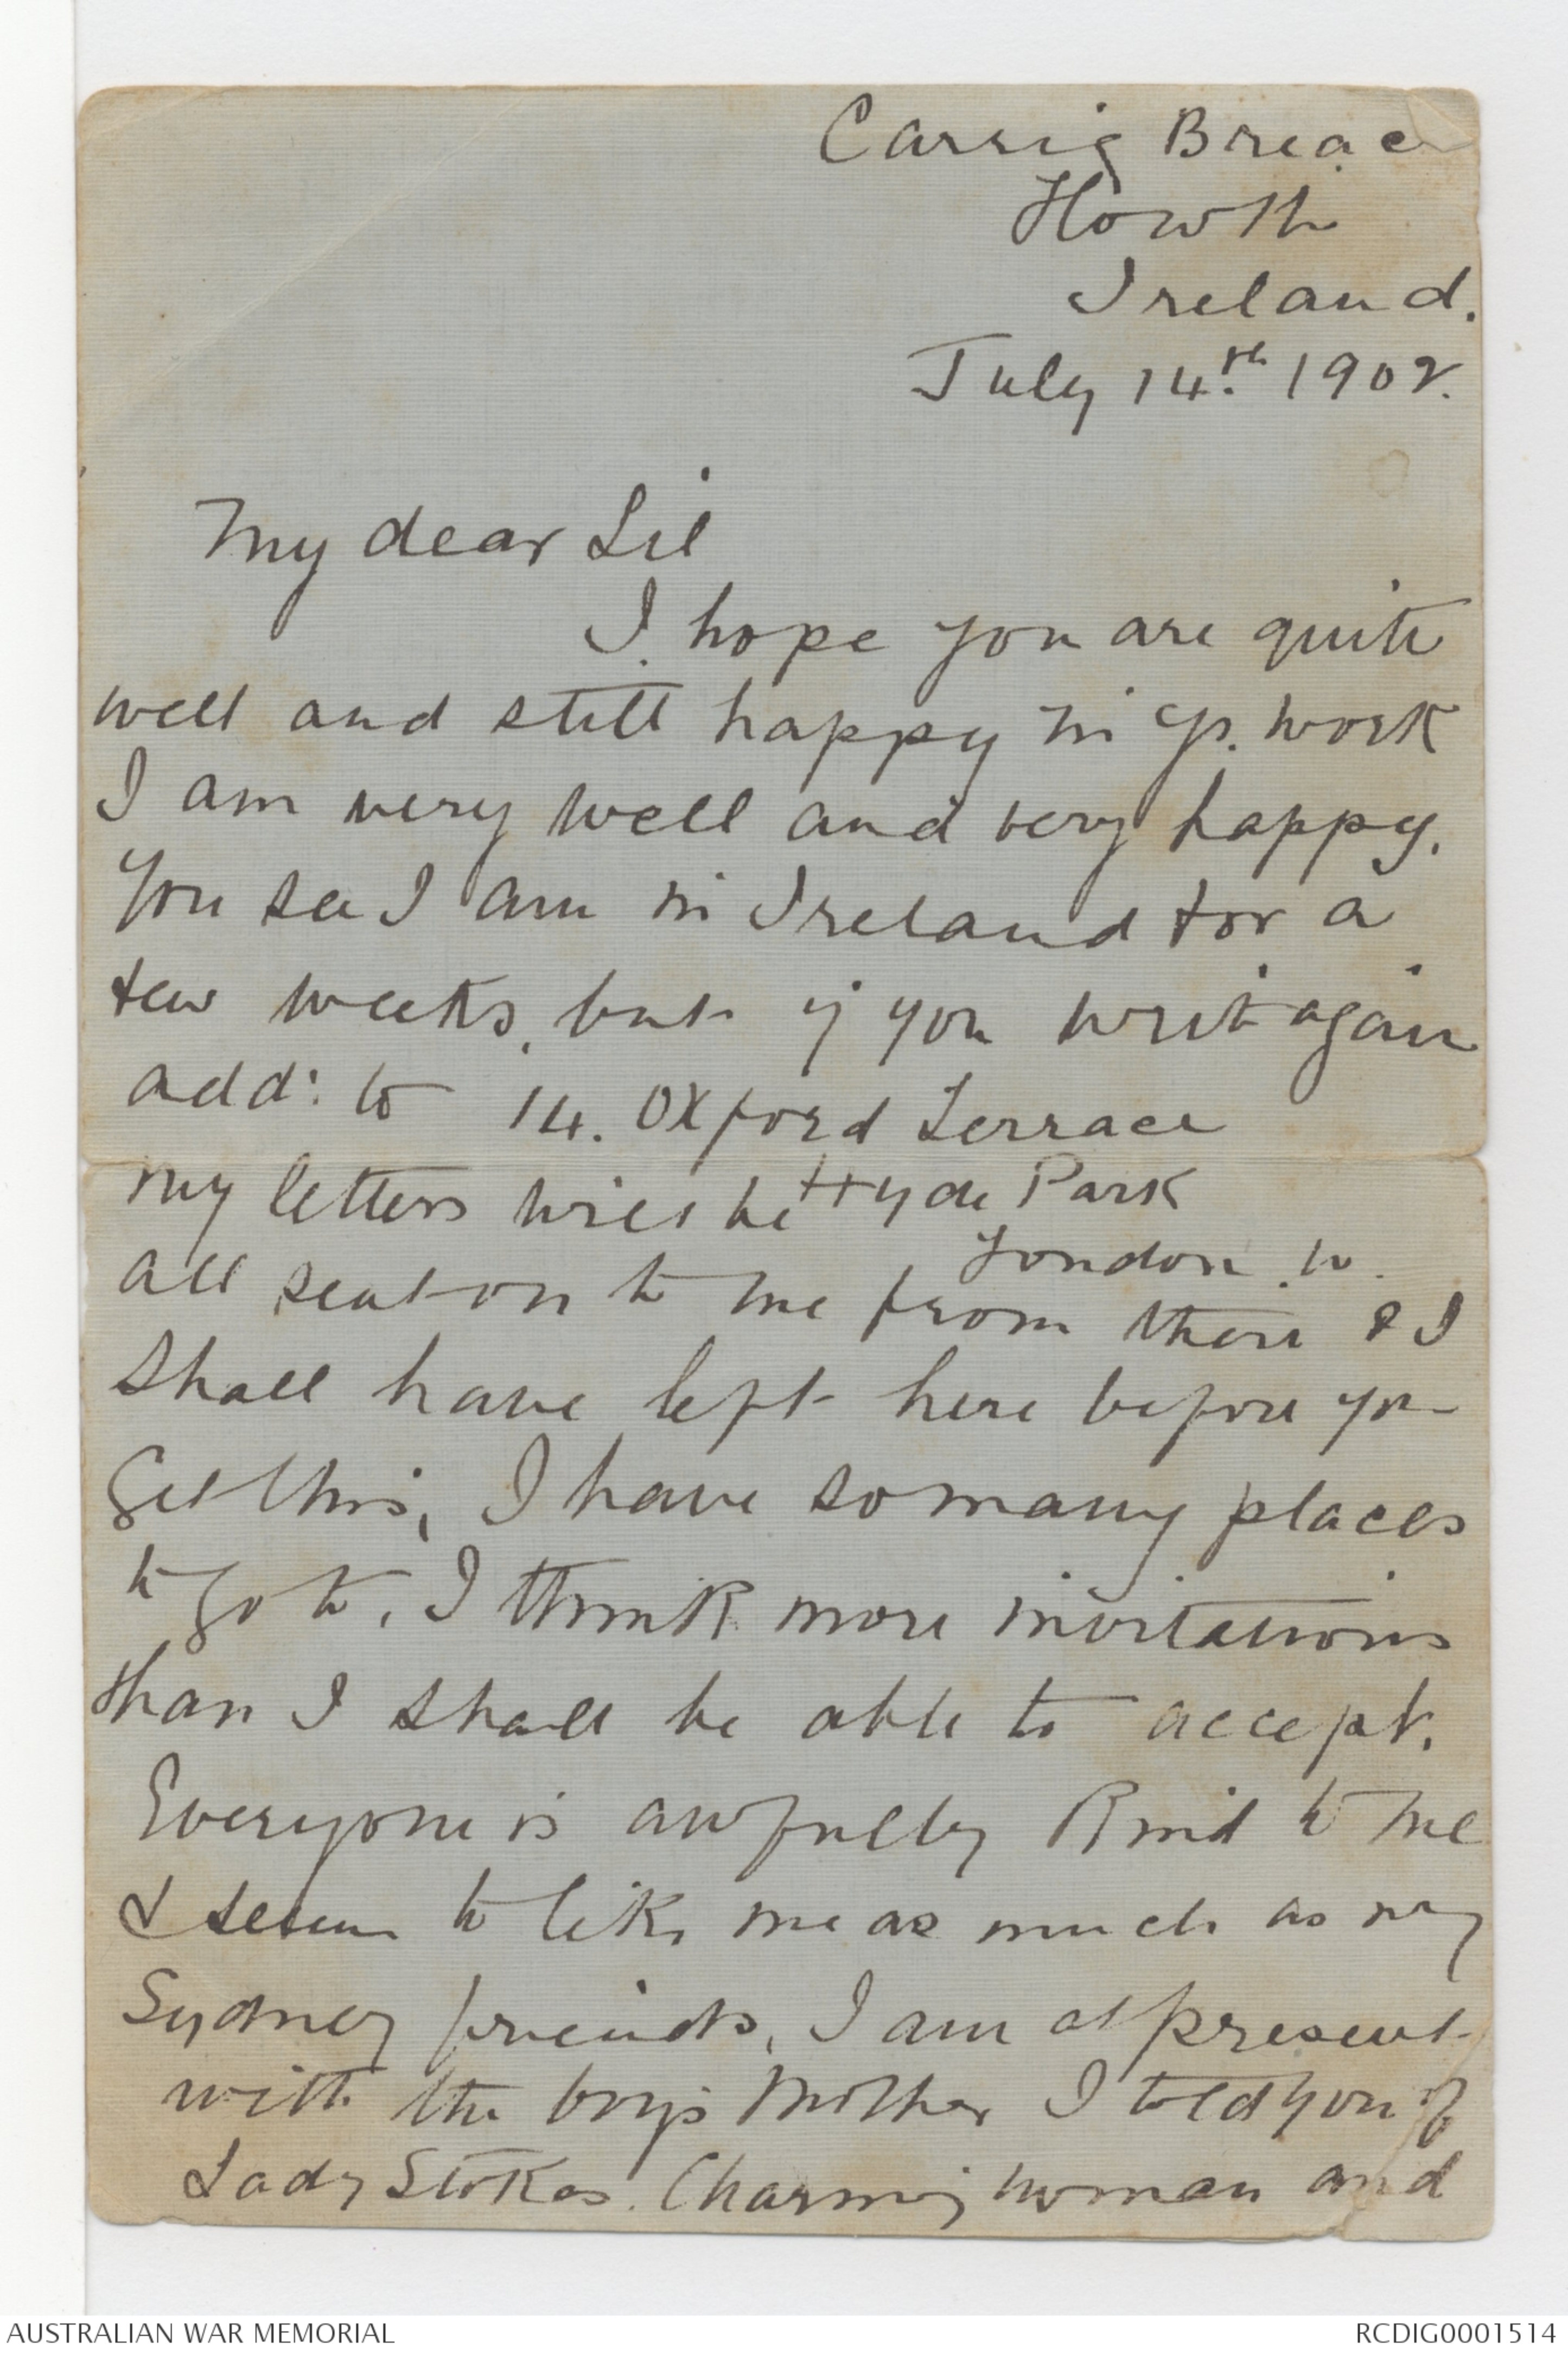 Carrig Breac
Howth
Ireland.
July 14.th 1902.
My dear Lil
I hope you are quite
well and still happy in yr. work
I am very well and very happy.
You see I am in Ireland for a
few weeks, but if you write again
add: to 14. Oxford Terrace
Hyde Park
London. W.
my letters will be
all sent on to me from there & I
shall have left here before you
get this, I have so many places
to go to, I think more invitations
than I shall be able to accept.
Everyone is awfully kind to me
& seem to like me as much as my
Sydney friends, I am at present
with the boy's Mother I told you of
Lady Stokes. Charming woman and
AUSTRALIAN WAR MEMORIAL
RCDIG0001514